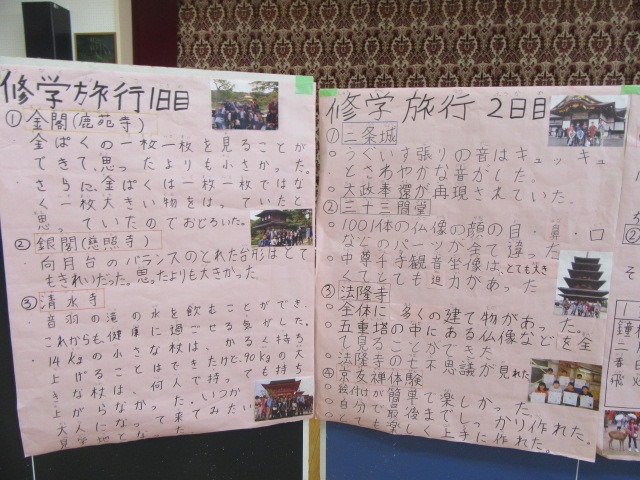 修学旅行1日目
① 金閣(鹿苑寺)
・金ぱくの一枚一枚を見ることが
できて、思ったよりも小さかった。
・さらに、金ぱくは一枚一枚ではな
く一枚大きい物をはっていたと
思っていたのでおどろいた。
② 銀閣(慈照寺)
・向月台のバランスのとれた台形はとて
もきれいだった。思ったよりも大きかった
③ 清水寺
・音羽の滝の水を飲むことができ、
これからも健康に過ごせる気がした。
・14kgの小さな杖は、かるく持ち
上げることはできたけど、90kgの大
きな杖は、何人で持っても持ち
上がらなかった。いつか
大人になって来てみたい
見学地となった
修学旅行 2日目
① 二条城
○うぐいす張りの音はキュッキュ
とさわやかな音がした。
○大政奉還が再現されていた。
② 三十三間堂
○1001体の仏像の顔の目・鼻・口
などのパーツが全て違った
○中尊千手観音坐像は、とても大き
くてとても迫力があった
③ 法隆寺
○全体に多くの建て物があった。
○五重塔の中にある仏像などを全
て見ることができた
○法隆寺の七不思議が見れた
④ 京友禅体験
○絵付けが簡単で楽しかった。
○自分で最後までしっかり作れた。
○とても楽しく上手に作れた。